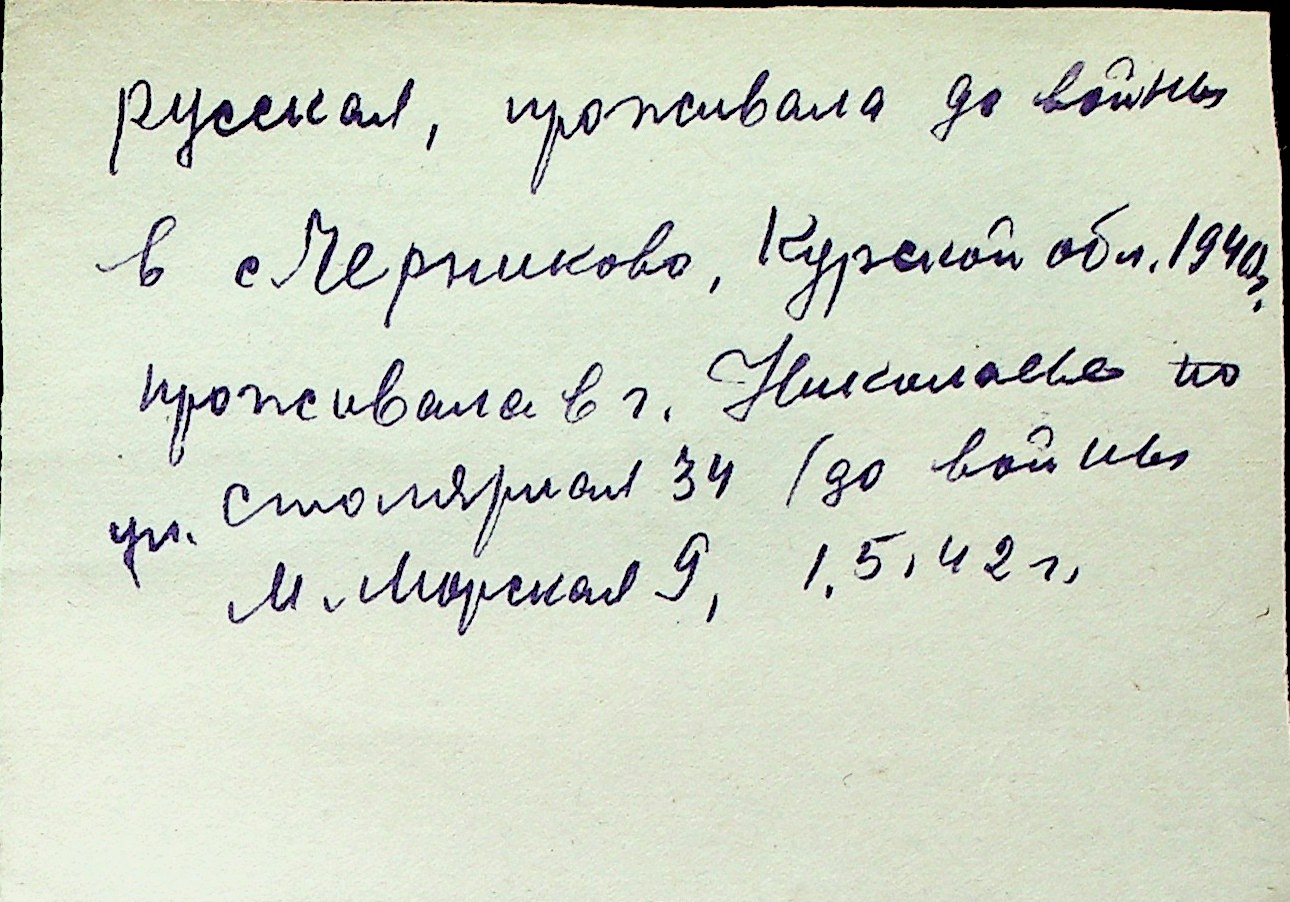 русская, проживала до войны
в с Черниково, Курской обл. 1940г.
проживала в г. Николаеве по
ул. Столярная 34 (до войны
М. Морская 9, 1.5.42 г.